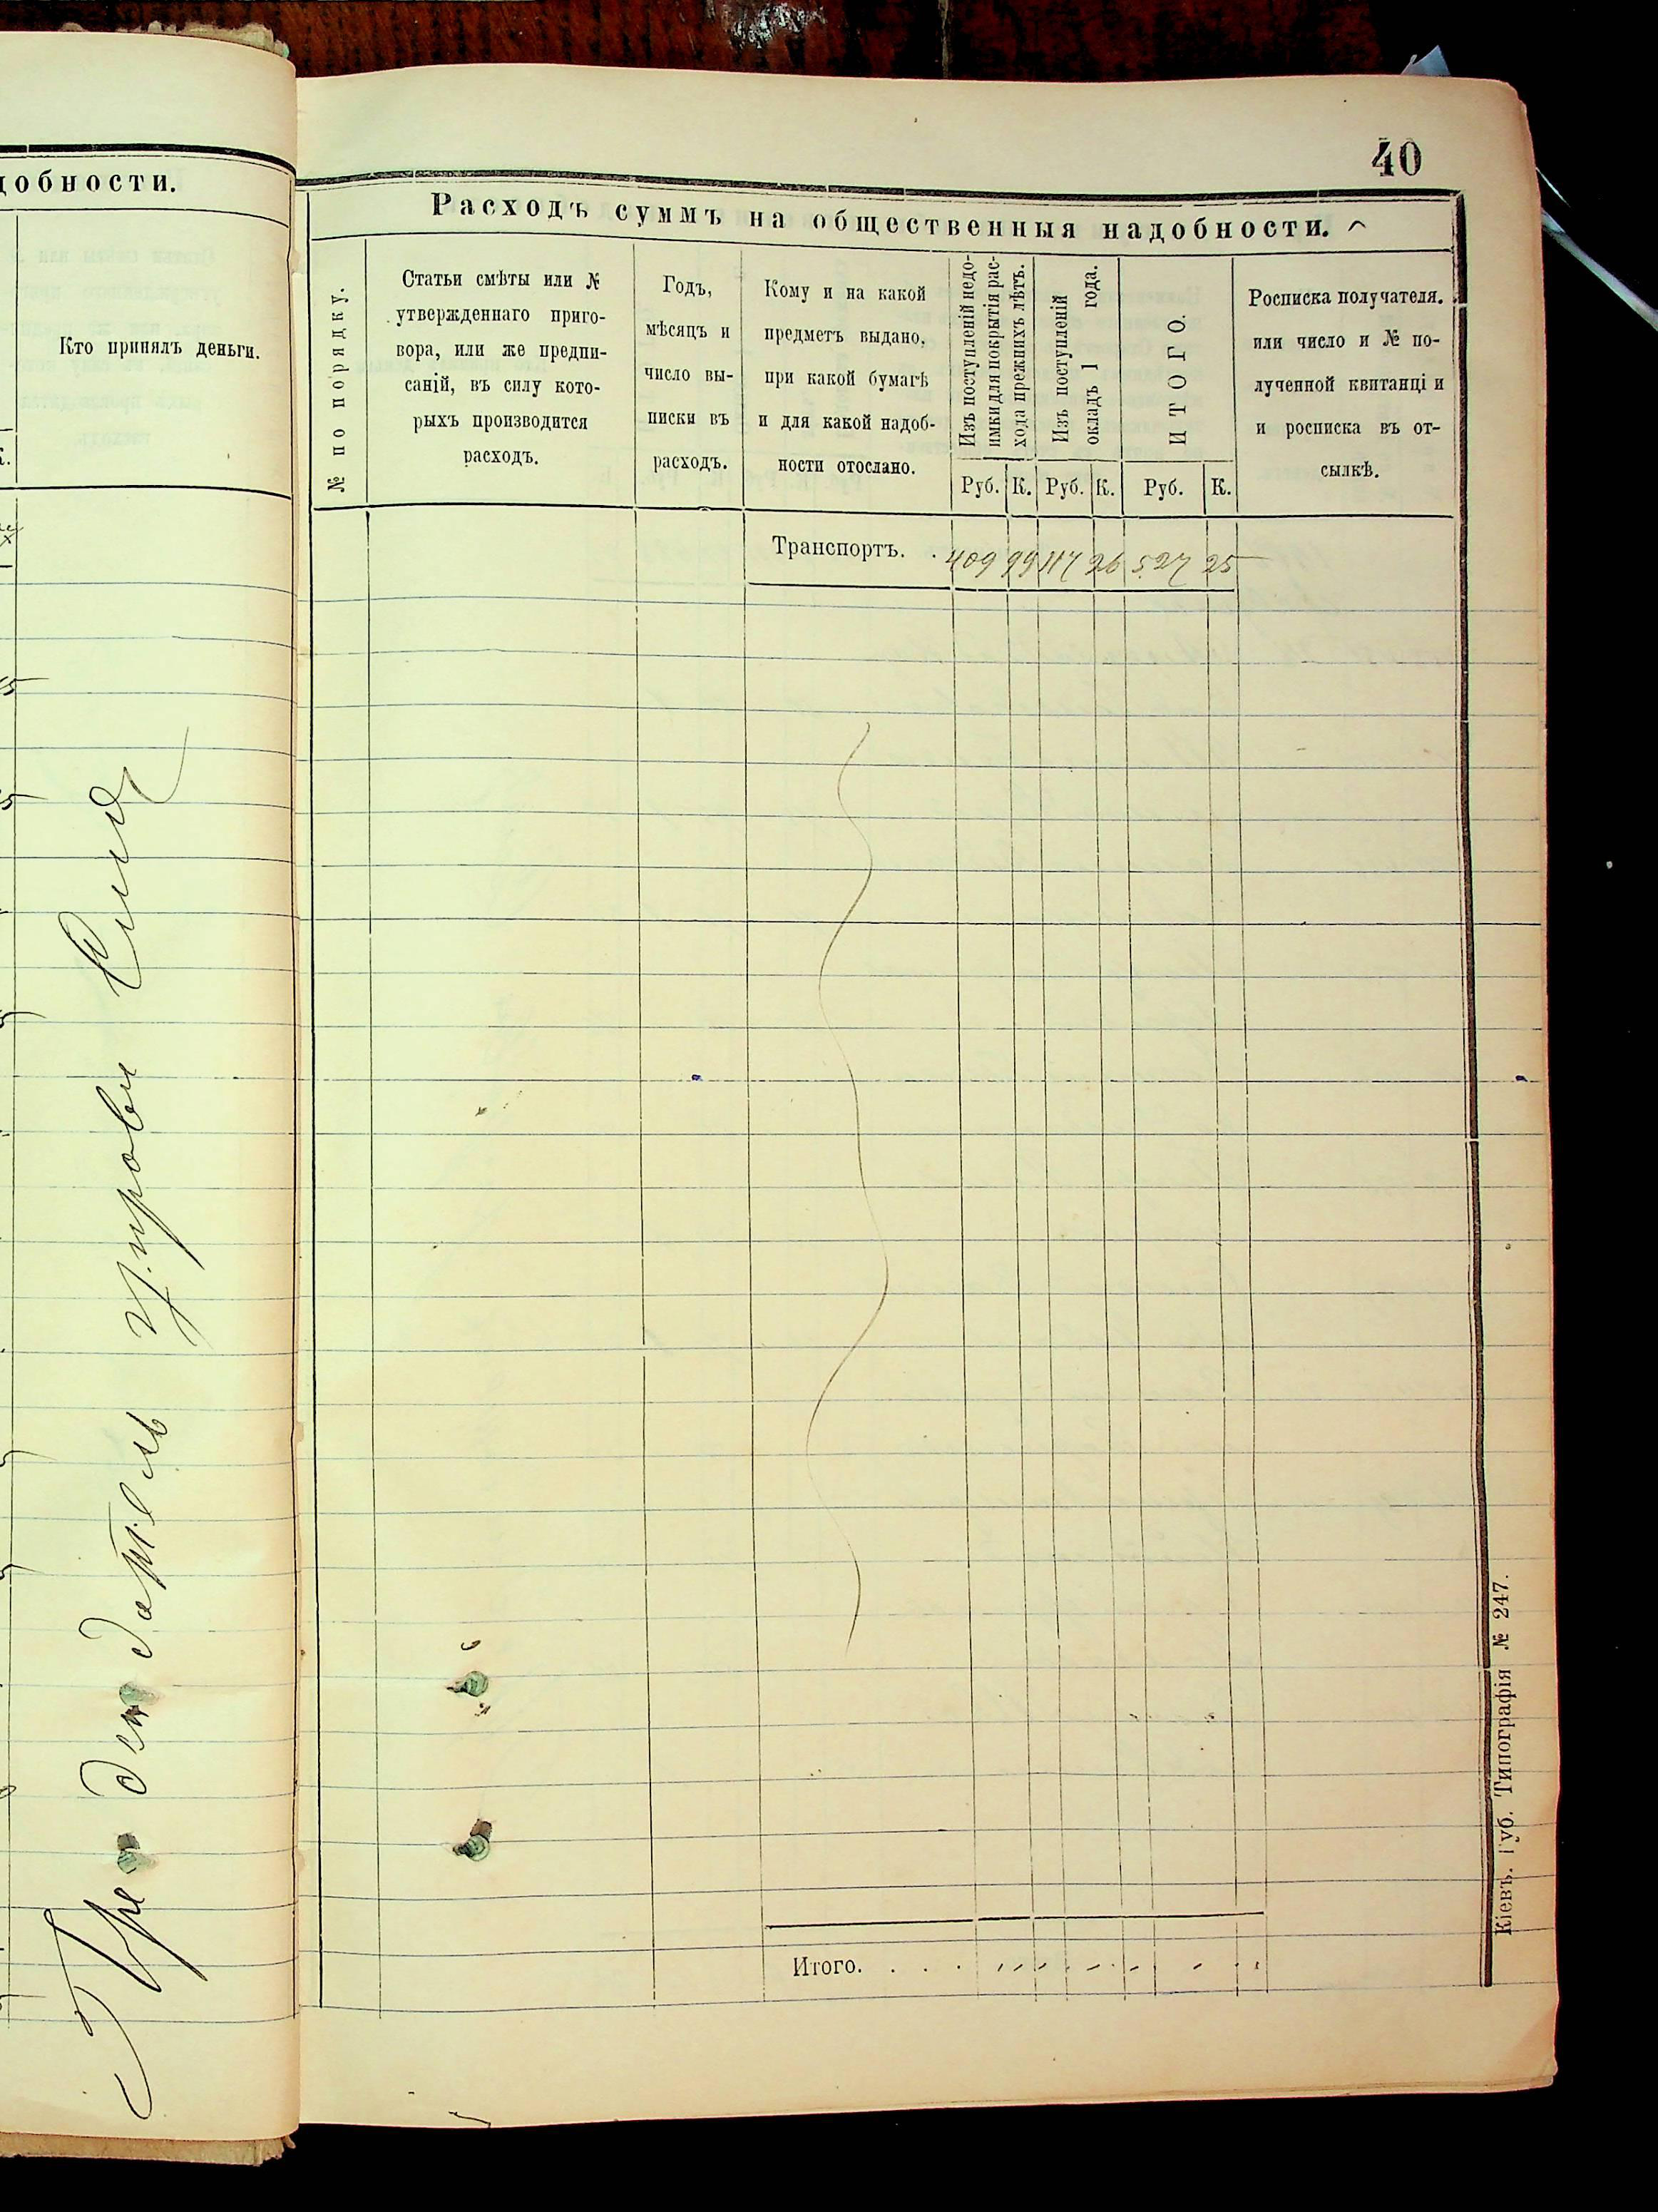 добности.
Кто принялъ деньги.
К.
40
Расходъ суммъ на общественныя надобности.
№ по порядку.
Статьи смѣты или №
утвержденнаго приго-
вора, или же предпи-
саній, въ силу кото-
рыхъ производится
расходъ.
Годъ,
мѣсяцъ и
число вы-
писки въ
расходъ.
Кому и на какой
предметъ выдано,
при какой бумагѣ
и для какой надоб-
ности отослано.
Изъ поступленій недо-
имки для покрытія рас-
хода прежнихъ лѣтъ.
Изъ поступленій
окладъ 1 года.
ИТОГО.
Росписка получателя.
или число и № по-
лученной квитанці и
и росписка въ от-
сылкѣ.
Руб. К. Руб. К. Руб. К.
Транспортъ. . 409 99 117 26 527 25
Итого. . . .
Кіевъ. Губ. Типографія № 247.